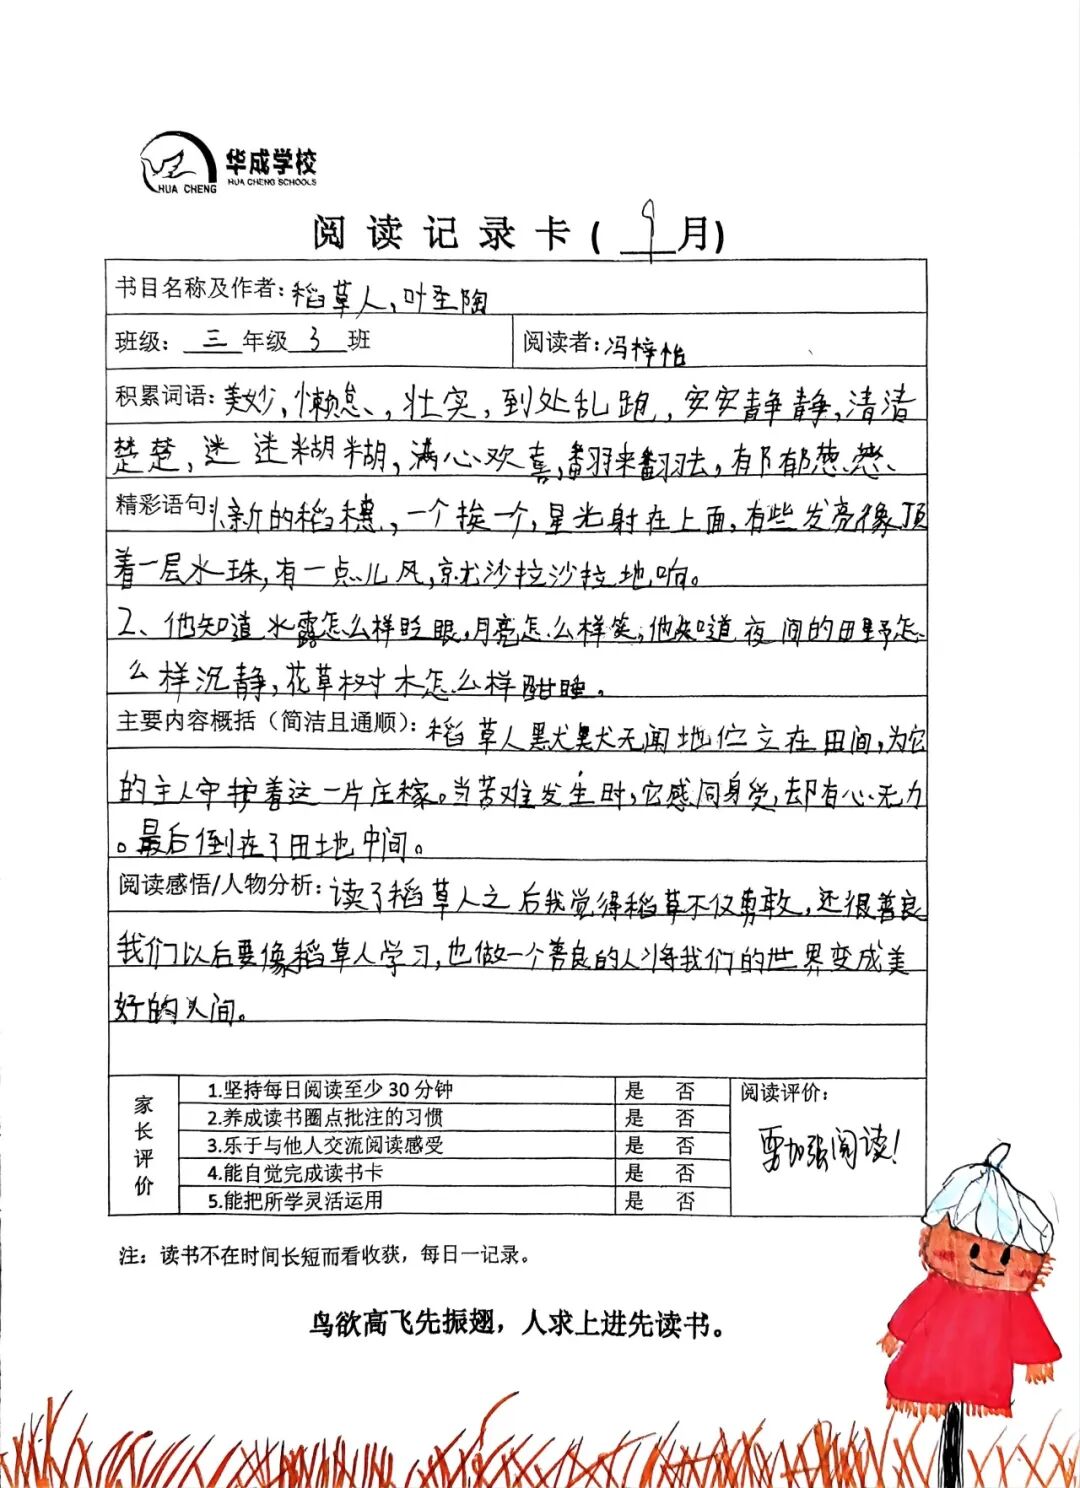 华成学校
HUA CHENG SCHOOLS
HUA CHENG
阅读记录卡(9月)
书目名称及作者:稻草人,叶圣陶
班级:三年级3班
阅读者:冯梓怡
积累词语:美妙,懒怠,壮实,到处乱跑,安安静静,清清
楚楚,迷迷糊糊,满心欢喜,翻来翻去,郁郁葱葱、
精彩语句:1、新的稻穗,一个挨一个,星光射在上面,有些发亮像顶
着一层水珠,有一点儿风,就沙拉沙拉地响。
2、他知道水露怎么样眨眼,月亮怎么样笑;他知道夜间的田野怎
么样沉静,花草树木怎么样酣睡。
主要内容概括(简洁且通顺):稻草人默默无闻地伫立在田间,为它
的主人守护着这一片庄稼。当苦难发生时,它感同身受,却有心无力
。最后倒在了田地中间。
阅读感悟/人物分析:读了稻草人之后我觉得稻草不仅勇敢,还很善良
我们以后要像稻草人学习,也做一个善良的人将我们的世界变成美
好的人间。
家长评价
1.坚持每日阅读至少30分钟 是 否
2.养成读书圈点批注的习惯 是 否
3.乐于与他人交流阅读感受 是 否
4.能自觉完成读书卡 是 否
5.能把所学灵活运用 是 否
阅读评价:
要加强阅读!
注:读书不在时间长短而看收获,每日一记录。
鸟欲高飞先振翅,人求上进先读书。